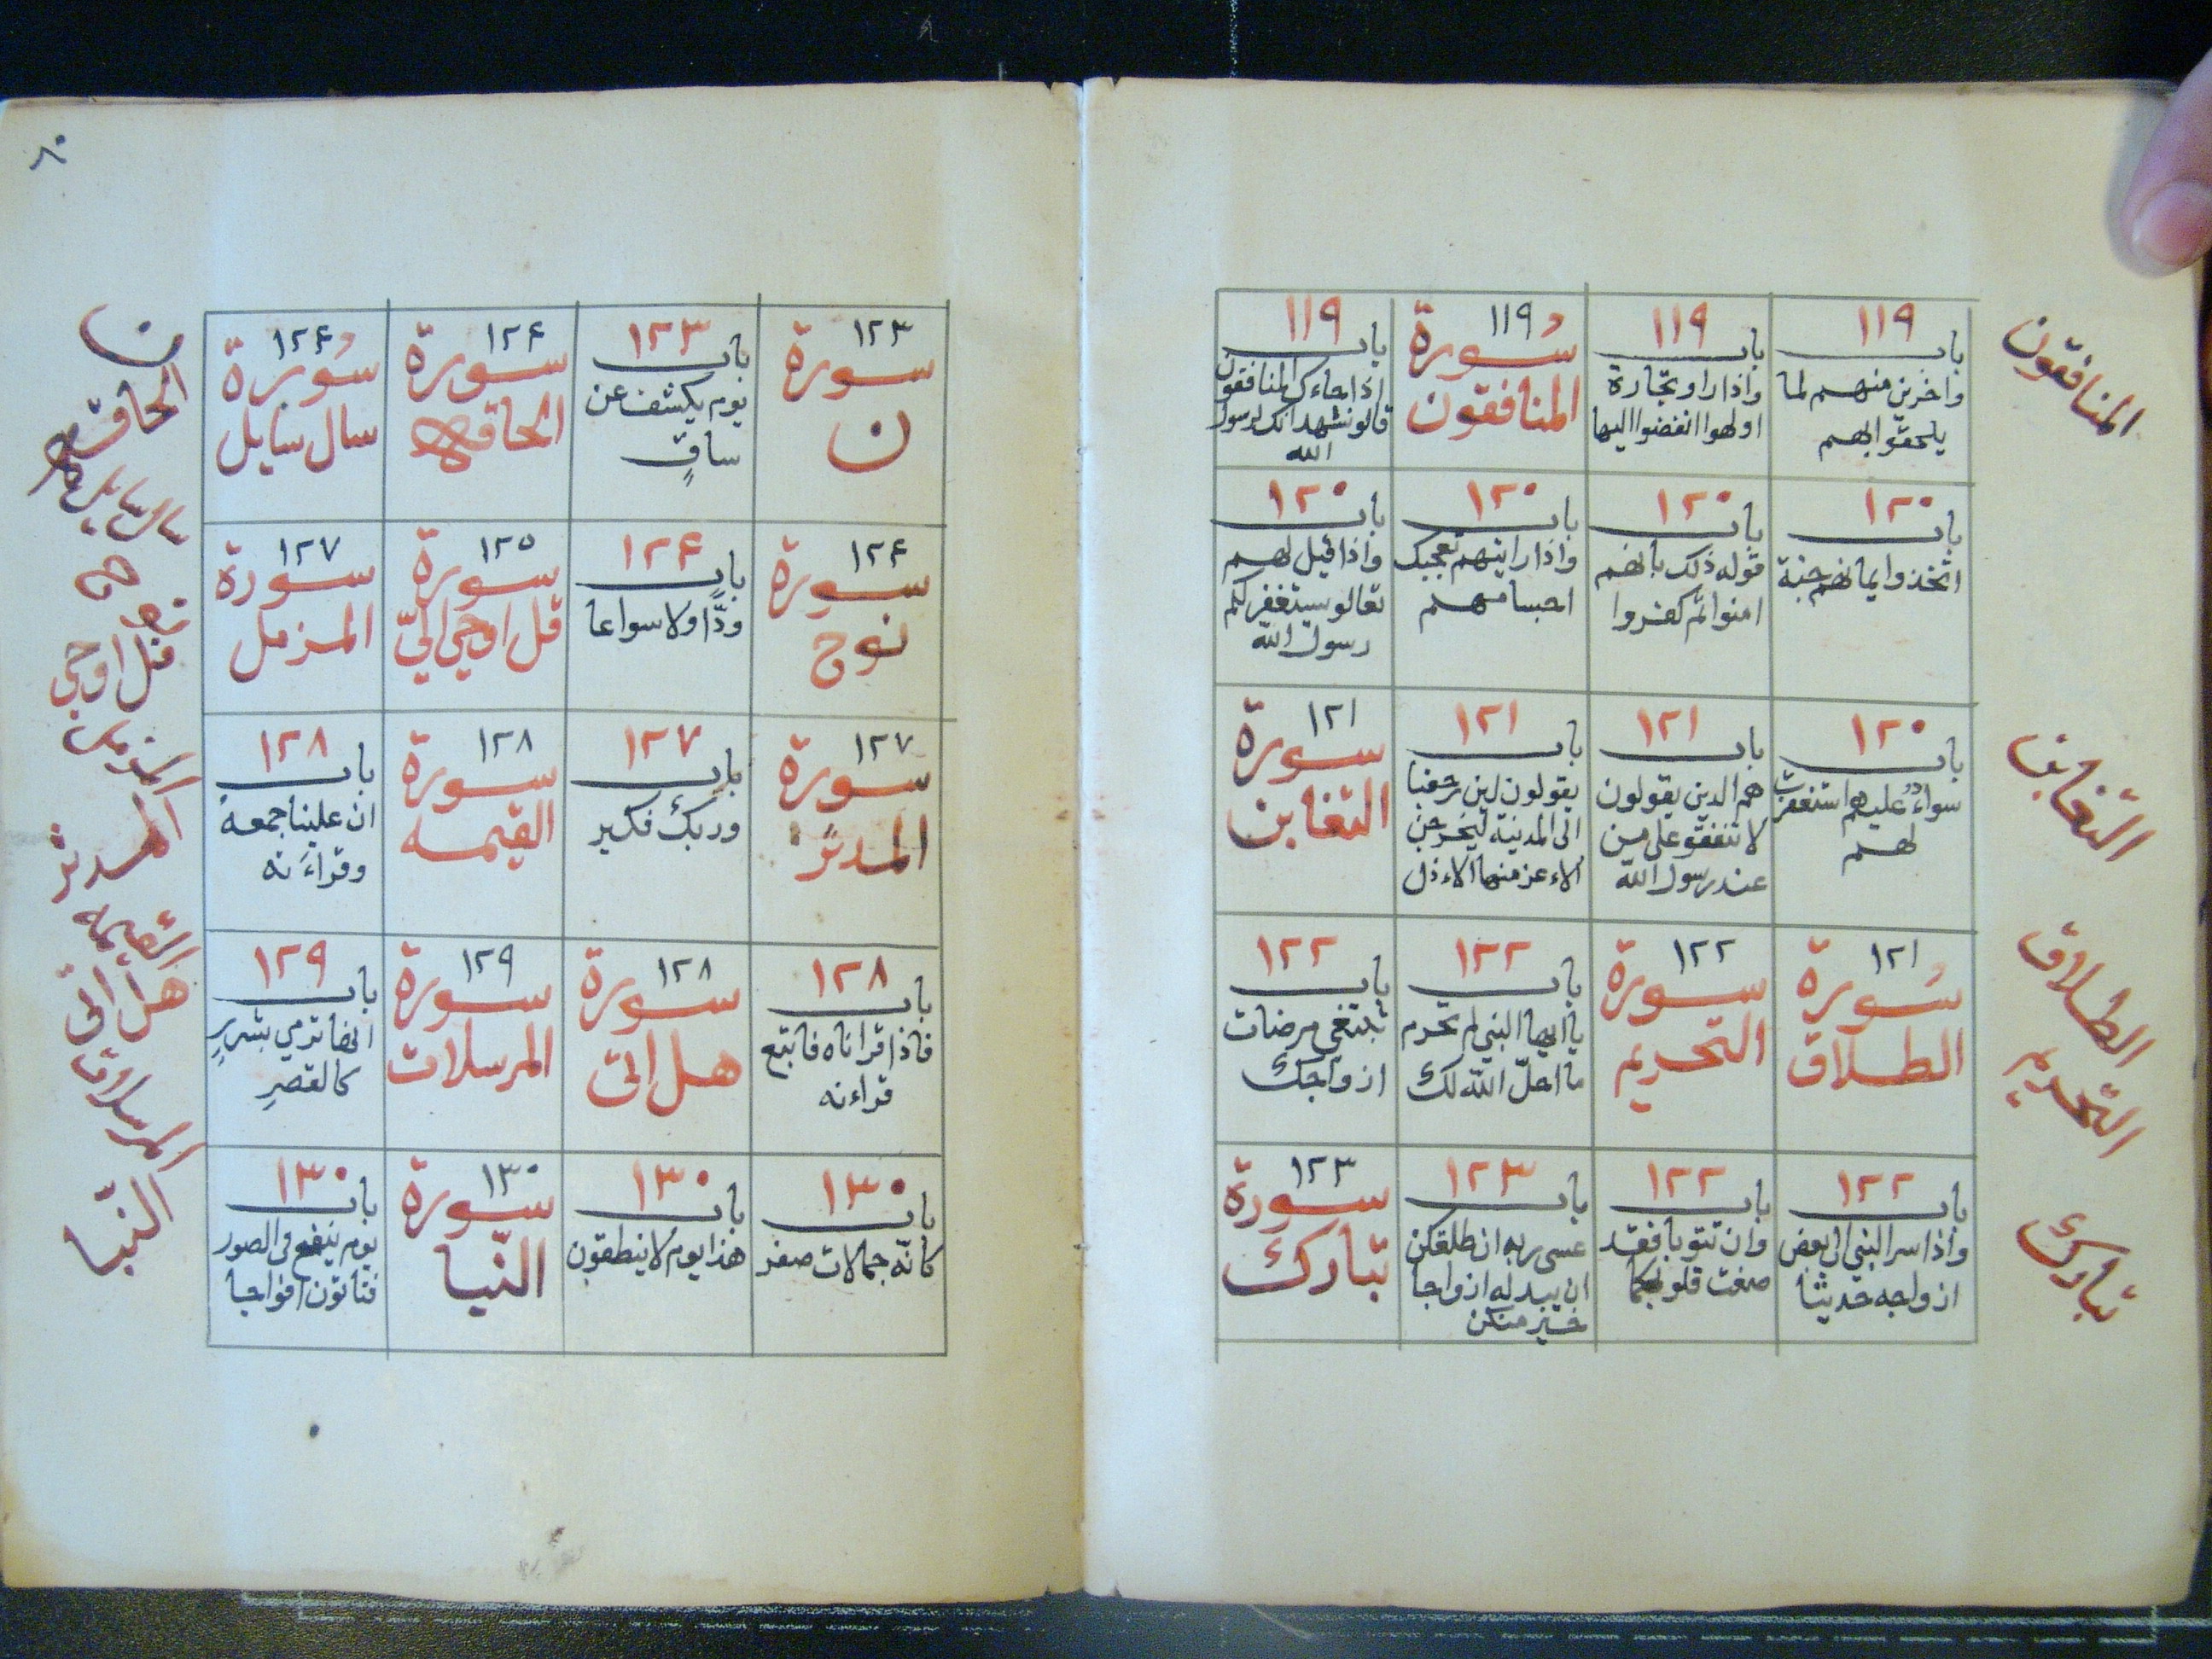 المنافقون
التغابن
الطلاق
التحريم
تبارك
١١٩
باب
واخرين منهم لما
يلحقوا بهم
١١٩
باب
واذا راو تجارة
او لهوا انفضوا اليها
١١٩
سورة
المنافقون
١١٩
باب
اذا جاءك المنافقون
قالو نشهد انك لرسول
الله
١٢٠
باب
اتخذوا ايمانهم جنة
١٢٠
باب
قوله ذلك بانهم
امنوا ثم كفروا
١٢٠
باب
واذا رايتهم تعجبك
اجسامهم
١٢٠
باب
واذا قيل لهم
تعالو يستغفر لكم
رسول الله
١٢٠
باب
سواء عليهم استغفرت
لهم
١٢١
باب
هم الدين يقولون
لا تنفقو على من
عند رسول الله
١٢١
باب
يقولون لين رجعنا
الى المدينة ليخرجن
الاءعز منها الاءذل
١٢١
سورة
التغابن
١٢١
سورة
الطلاق
١٢٢
سورة
التحريم
١٢٢
باب
يا ايها النبي لم تحرم
ما احل الله لك
١٢٢
باب
تبتغي مرضات
ازواجك
١٢٢
باب
واذا سر النبي الى بعض
ازواجه حديثا
١٢٢
باب
وان تتوبا فقد
صغت قلوبكما
١٢٣
باب
عسى ربه ان طلقكن
ان يبدله ازواجا
خير منكن
١٢٣
سورة
تبارك
٨٠
ن
الحاقه
سال سايل
نوح
قل اوحي
المزمل
المدثر
القيمه
هل اتى
المرسلات
النبا
١٢٣
سورة
ن
١٢٣
باب
يوم يكشف عن
ساق
١٢۴
سورة
الحاقه
١٢۴
سورة
سال سايل
١٢۴
سورة
نوح
١٢۴
باب
ودّا ولا سواعا
١٢٥
سورة
قل اوحي اليّ
١٢٧
سورة
المزمل
١٢٧
سورة
المدثر
١٢٧
باب
وربك فكبر
١٢٨
سورة
القيمه
١٢٨
باب
ان علينا جمعه
وقراءنه
١٢٨
باب
فاذا قراناه فاتبع
قراءنه
١٢٨
سورة
هل اتى
١٢٩
سورة
المرسلات
١٢٩
باب
انها ترمي بشررٍ
كالقصرِ
١٣٠
باب
كانّه جمالات صفر
١٣٠
باب
هذا يوم لا ينطقون
١٣٠
سورة
النبا
١٣٠
باب
يوم ينفخ في الصور
فتاتون افواجا